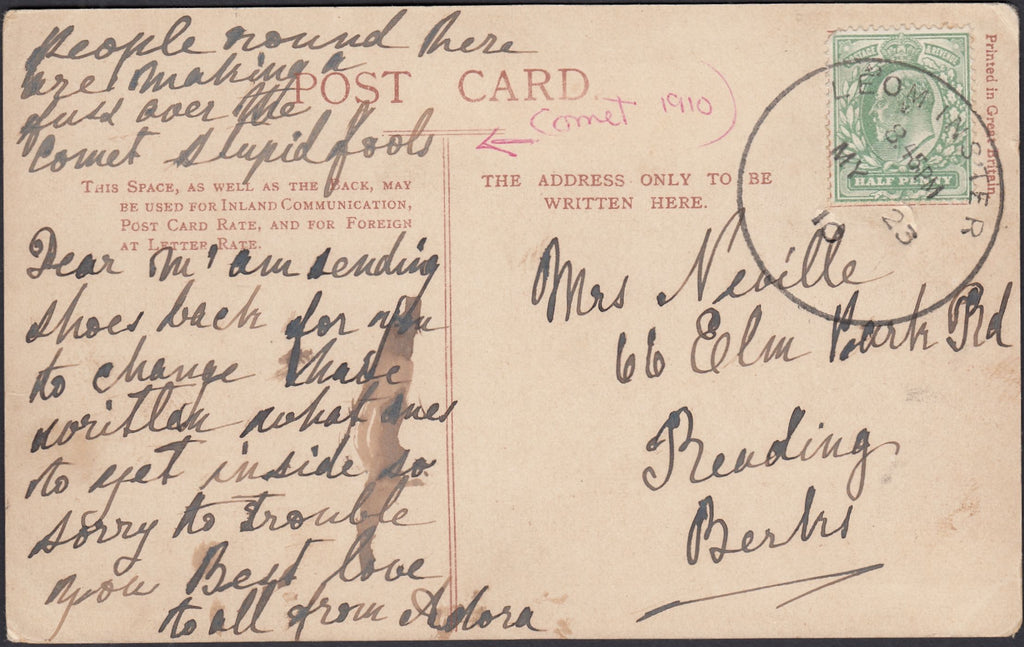 people round here
are making a
fuss over the
Comet stupid fools
POST CARD.
Comet 1910)
THIS SPACE, AS WELL AS THE BACK, MAY
BE USED FOR INLAND COMMUNICATION,
POST CARD RATE, AND FOR FOREIGN
AT LETTER RATE.
Dear M' am sending
shoes back for you
to change I have
written what ones
to get inside so
sorry to trouble
you Best love
to all from Adora
THE ADDRESS ONLY TO BE
WRITTEN HERE.
Mrs Neville
66 Elm Park Rd
Reading
Berks
POSTAGE & REVENUE
HALF PENNY
LEOMINSTER
8.45PM
MY 23
10
Printed in Great Britain.